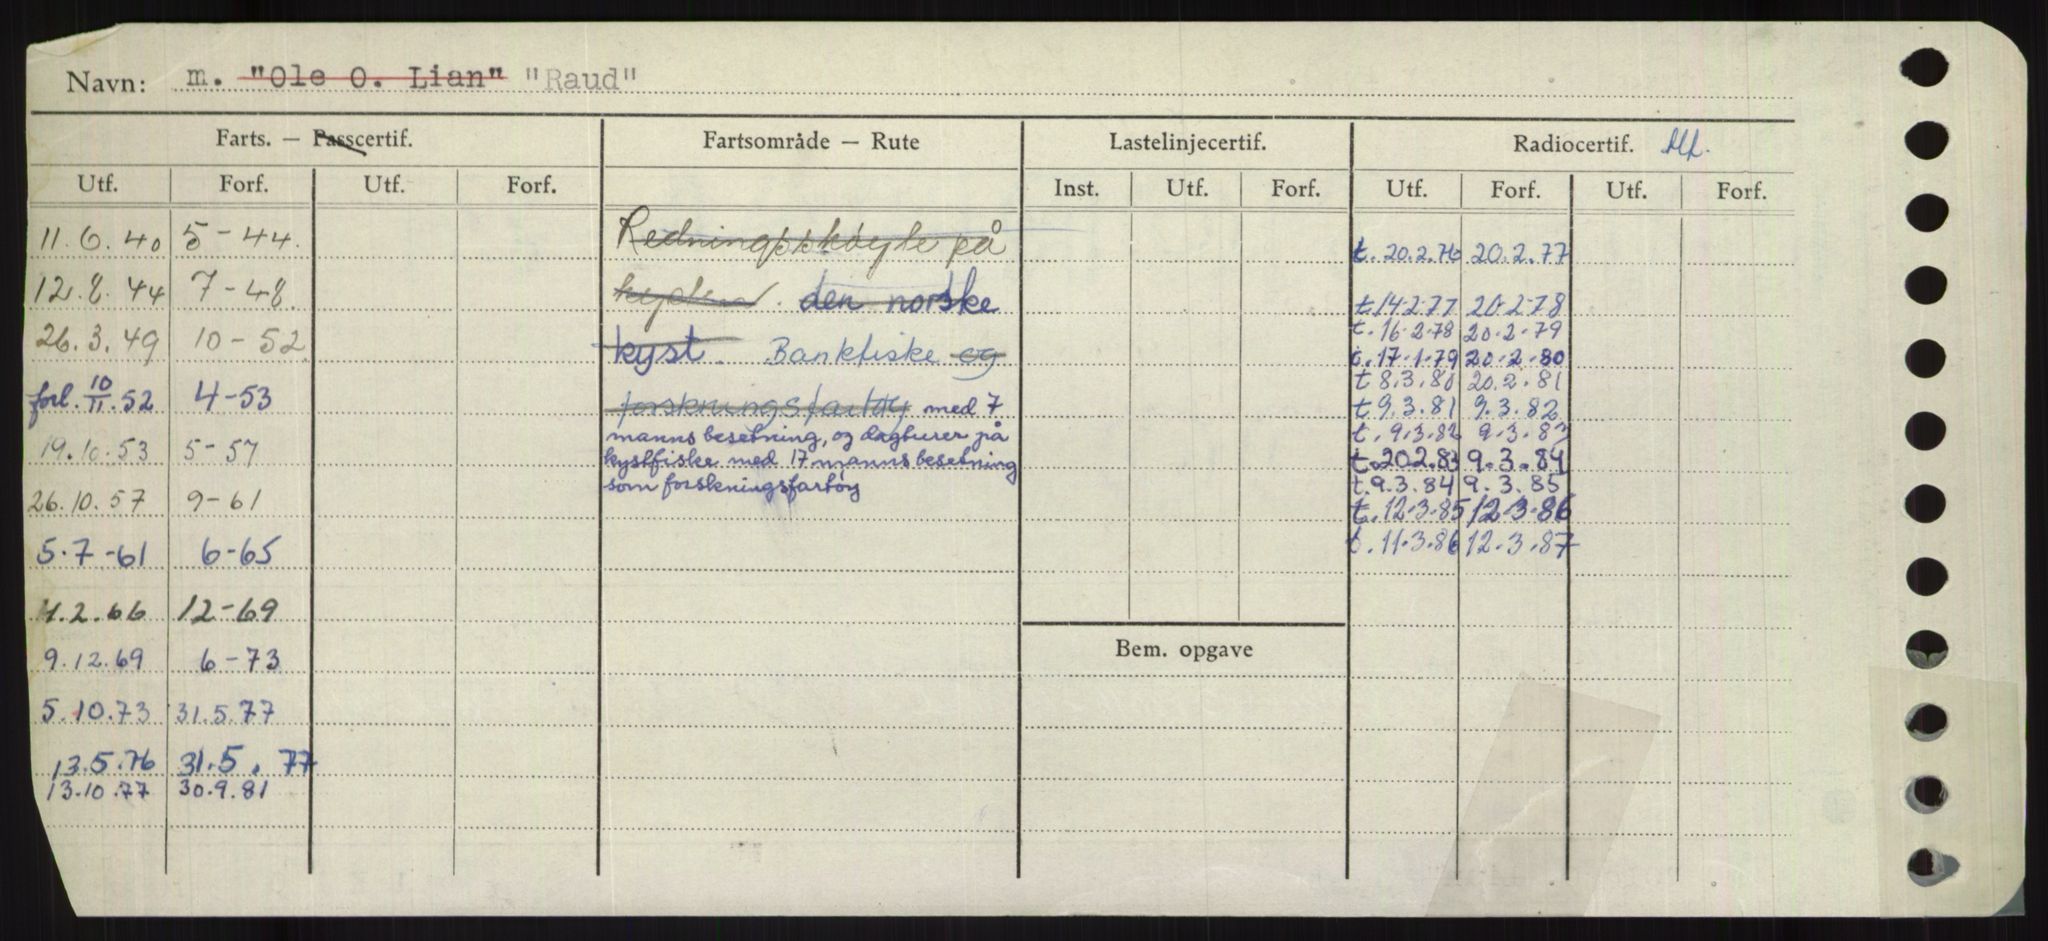 Navn: m. "Ole O. Lian" "Raud"
Farts. — Passcertif. Fartsområde — Rute Lastelinjecertif. Radiocertif.
Utf. Forf. Utf. Forf. Inst. Utf. Forf. Utf. Forf. Utf. Forf.
11.6.40 5-44. Redningsskøyte på t. 20.2.76 20.2.77
12.8.44 7-48 kysten. den norske t 14.2.77 20.2.78
26.3.49 10-52 kyst. Bankfiske og t. 16.2.78 20.2.79
t. 17.1.79 20.2.80
t 8.3.80 20.2.81
forl. 10/11.52 4-53 forskningsfartøy med 7 t 9.3.81 9.3.82
19.10.53 5-57 manns besetning, og dagturer på t. 9.3.82 9.3.83
kystfiske med 17 manns besetning t. 20.2.83 9.3.84
26.10.57 9-61 som forskningsfartøy t. 9.3.84 9.3.85
t. 12.3.85 12.3.86
5.7-61 6-65 t. 11.3.86 12.3.87
4.2.66 12-69
9.12.69 6-73 Bem. opgave
5.10.73 31.5.77
13.5.76 31.5.77
13.10.77 30.9.81